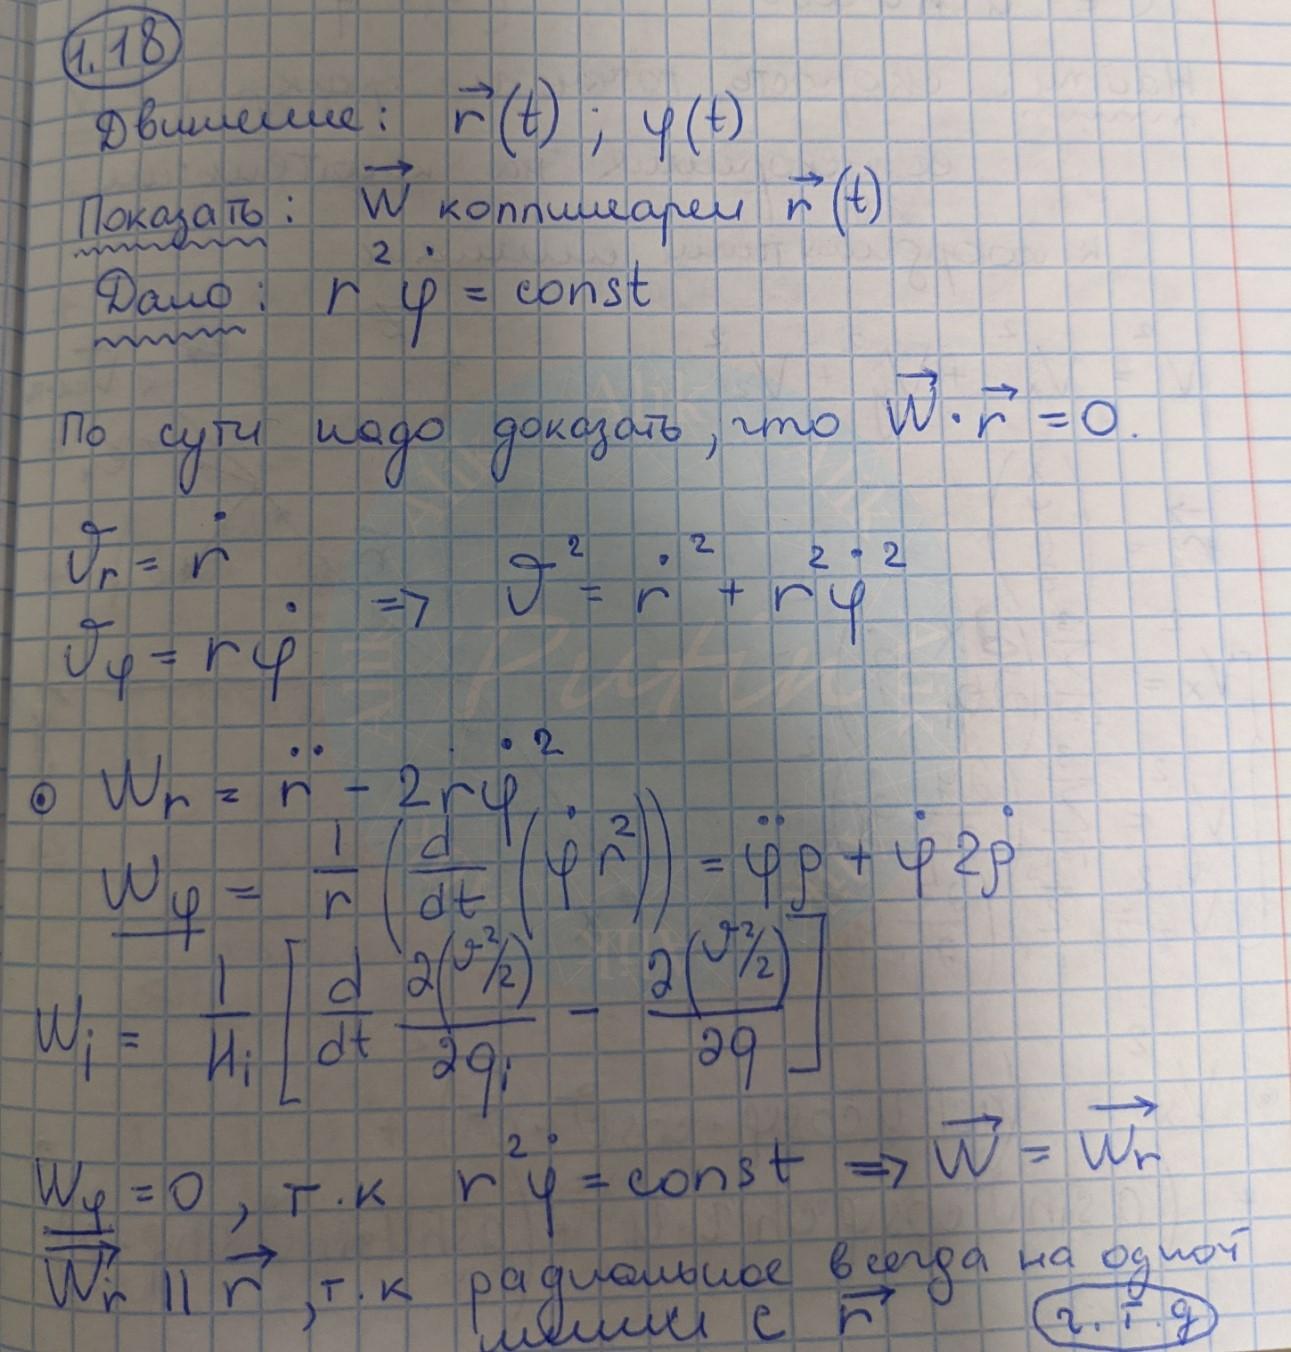 1.18
Движение: r⃗(t) ; φ(t)
Показать: W⃗ коллинеарен r⃗(t)
Дано: r²φ̇ = const
По сути надо доказать, что W⃗ · r⃗ = 0.
ϑ_r = ṙ
ϑ_φ = rφ̇ => ϑ² = ṙ² + r²φ̇²
⊙ W_r = r̈ - 2rφ̇²
W_φ = 1/r (d/dt (φ̇r²)) = φ̈ρ + φ̇2ρ̇
W_i = 1/H_i [d/dt ∂(ϑ²/2)/∂q̇_i - ∂(ϑ²/2)/∂q]
W_φ = 0, т.к r²φ̇ = const => W⃗ = W⃗_r
W⃗_r || r⃗, т.к радиальное всегда на одной
линии с r⃗ ч.т.д